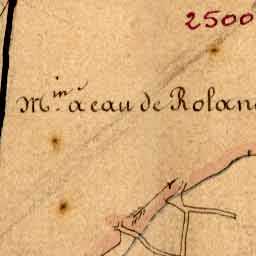 2500
M.in à eau de Rolan